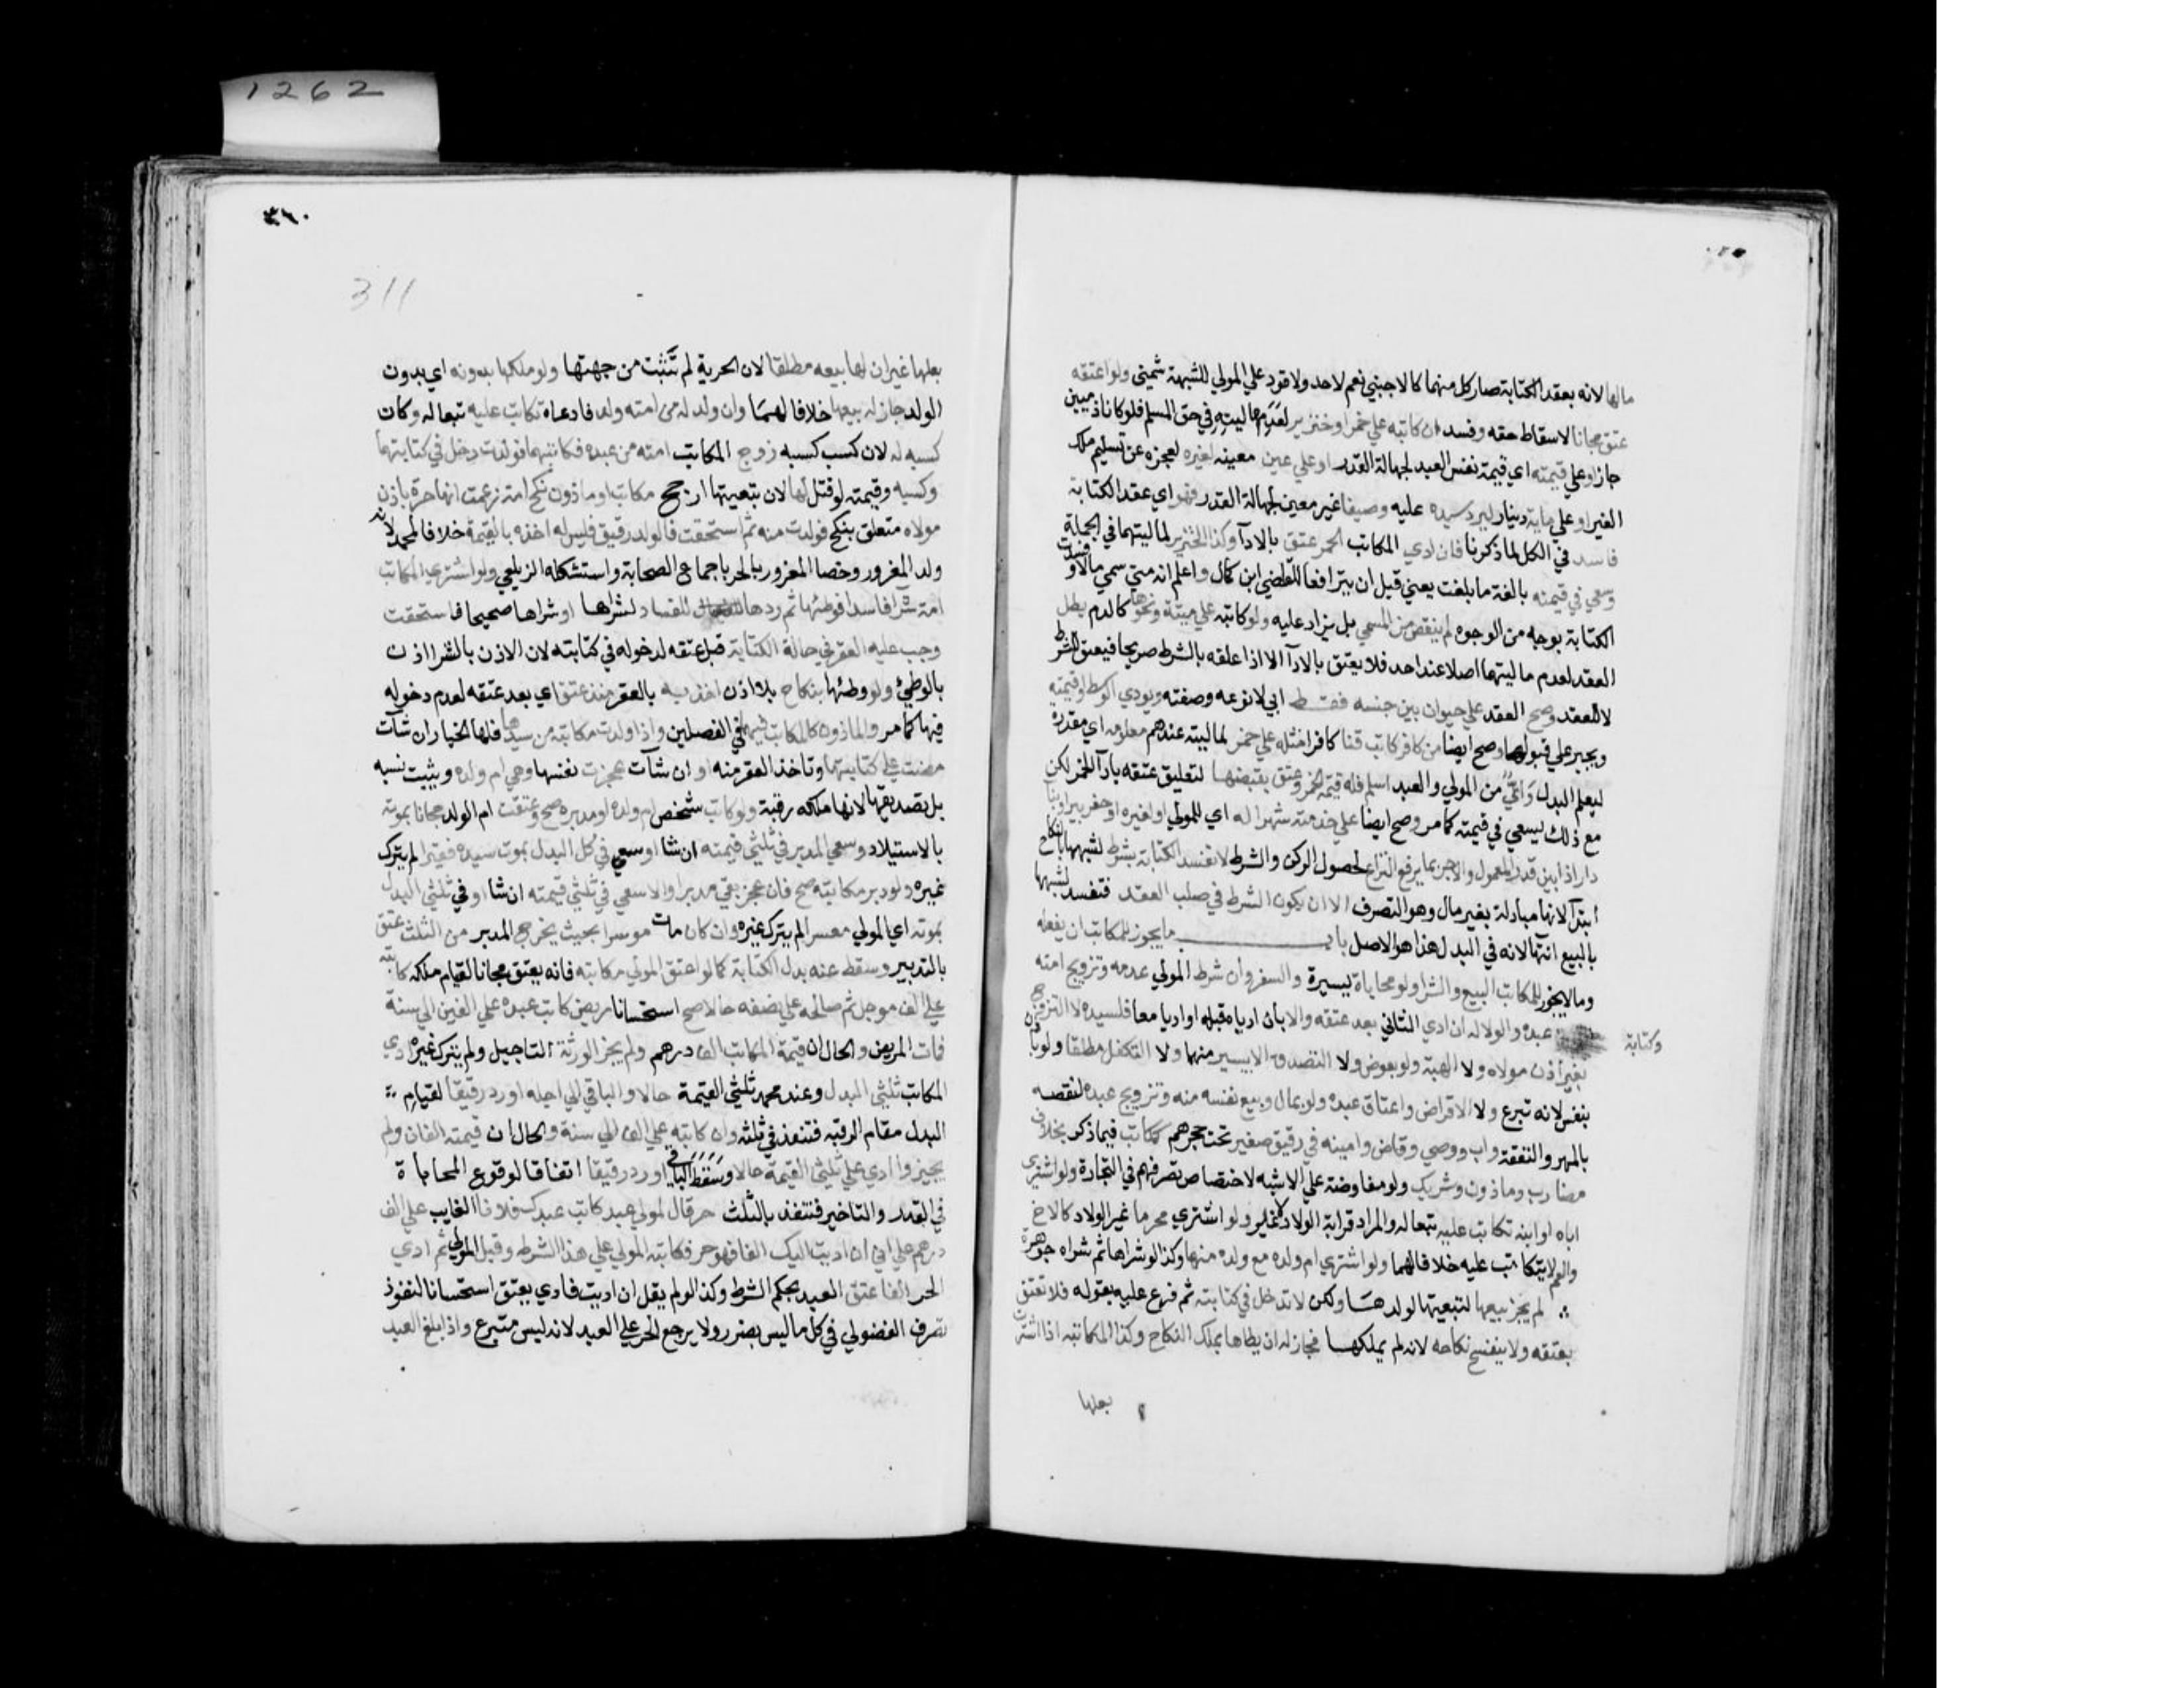 1262
مالها لانه بعقد الكتابة صار كل منهما كالاجنبي نعم لاحد ولا قود علي المولي للشبهة شمني ولو اعتقه
عتق مجانا لاسقاط حقه وفسد ان كاتبه علي خمر او خنزير لعدم ماليته في حق المسلم فلو كانا ذميين
جاز او علي قيمته اي قيمة نفس العبد لجهالة القدر او علي عين معينه لغيره لعجزه عن تسليم ملك
الغير او علي ماية دينار ليرد سيده عليه وصيفا غير معين لجهالة القدر فهو اي عقد الكتابة
فاسد في الكل لما ذكرنا فان ادي المكاتب الخمر عتق بالادآ وكذا الخنزير لماليتهما في الجملة
وسعي في قيمته بالغة ما بلغت يعني قبل ان يترافعا للقاضي ابن كمال واعلم انه متي سمي مالا وفسدت
الكتابة بوجه من الوجوه لم ينقص من المسمي بل يزاد عليه ولو كاتبه علي ميتة ونحوها كالدم بطل
العقد لعدم ماليتها اصلا عند احد فلا يعتق بالادآ الا اذا علقه بالشرط صريحا فيعتق للشرط
لا للعقد وصح العقد علي حيوان بين جنسه فقط اي لا نوعه وصفته ويودي الوسط او قيمته
ويجبر علي قبولها وصح ايضا من كافر كاتب قنا كافرا مثله علي خمر لماليته عندهم معلومه اي مقدره
ليعلم البدل واي من المولي والعبد اسلم فله قيمة الخمر وعتق بقبضها لتعليق عتقه بادآ الخمر لكن
مع ذلك يسعي في قيمته كما مر وصح ايضا علي خدمته شهرا له اي للمولي او لغيره او حفر بير او بنا
دار اذا بين قدر المعمول والاجر بما يرفع النزاع لحصول الركن والشرط لا تفسد الكتابة بشرط لشبهها بالنكاح
ابتدآ لانها مبادلة بغير مال وهو التصرف الا ان يكون الشرط في صلب العقد فتفسد لشبهها
بالبيع انتهآ لانه في البدل هذا هو الاصل باب ما يجوز للمكاتب ان يفعله
وما لا يجوز للمكاتب البيع والشرا ولو محاباة يسيرة والسفر وان شرط المولي عدمه وتزويج امته
وكتابة
عبده والولا له ان ادي الثاني بعد عتقه والا بأن ادياه قبله او اديا معا فلسيده لا التزوج
بغير اذن مولاه ولا الهبة ولو بعوض ولا التصدق الا بيسير منهما ولا التكفل مطلقا ولو باذن
بنفس لانه تبرع ولا الاقراض واعتاق عبده ولو بمال وبيع نفسه منه وتزويج عبده لنقصه
بالمهر والنفقة واب ووصي وقاض وامينه في رقيق صغير تحت حجرهم كمكاتب فيما ذكر بخلاف
مضارب وماذون وشريك ولو مفاوضة علي الاشبه لاختصاص تصرفهم في التجارة ولو اشتري
اباه او ابنه تكاتب عليه تبعا له والمراد قرابة الولاد لا غير ولو اشتري محرما غير الولاد كالاخ
والعم لا يتكاتب عليه خلافا لهما ولو اشتري ام ولده مع ولده منها وكذا لو شراها ثم شراه جوهرة
لم يجز بيعها لتبعيتها لولدها ولكن لا تدخل في كتابته ثم فرع عليه بقوله فلا تعتق
بعتقه ولا ينفسخ نكاحه لانه لم يملكها فجاز له ان يطاها بملك النكاح وكذا المكاتبه اذا اشترت
بعلها
٣١٠
311
بعلها غير ان لها بيعه مطلقا لان الحرية لم تثبت من جهتها ولو ملكها بدونه اي بدون
الولد جاز له بيعها خلافا لهما وان ولد له من امته ولد فادعاه تكاتب عليه تبعا له وكان
كسبه له لان كسب كسبه زوج المكاتب امته من عبده فكاتبهما فولدت دخل في كتابتها
وكسبه وقيمته لو قتل لها لان تبعيتها ارجح مكاتب او ماذون نكح امة زعمت انها حرة باذن
مولاه متعلق بنكح فولدت منه ثم استحقت فالولد رقيق فليس له اخذه بالقيمة خلافا لمحمد لانه
ولد المغرور وخصا المغرور بالحر باجماع الصحابة واستشكله الزيلعي ولو اشتري المكاتب
امة شرآ فاسدا فوطئها ثم ردها للفساد لشراها او شراها صحيحا فاستحقت
وجب عليه العقر في حالة الكتابة قبل عتقه لدخوله في كتابته لان الاذن بالشرا اذن
بالوطئ ولو وطئها بنكاح بلا اذن اخذ به بالعقر منذ عتق اي بعد عتقه لعدم دخوله
فيها كما مر والماذون كالمكاتب فيهما في الفصلين واذا ولدت مكاتبة من سيدها فلها الخيار ان شآت
مضت علي كتابتها وتاخذ العقر منه او ان شآت عجزت نفسها وهي ام ولده ويثبت نسبه
بل تصديقها لانها ملكه رقبة ولو كاتب شخص ام ولده او مدبره صح وعتقت ام الولد مجانا بموته
بالاستيلاد وسعي المدبر في ثلثي قيمته ان شا او سعي في كل البدل بموت سيده فقيرا لم يترك
غيره ولو دبر مكاتبه صح فان عجز بقي مدبرا والا سعي في ثلثي قيمته ان شا او في ثلثي البدل
بموته اي المولي معسرا لم يترك غيره وان كان مات موسرا بحيث يخرج المدبر من الثلث عتق
بالتدبير وسقط عنه بدل الكتابة كما لو اعتق المولي مكاتبه فانه يعتق مجانا لقيام ملكه كاتبه
علي الف موجل ثم صالحه علي نصفه حالا صح استحسانا مريض كاتب عبده علي الفين الي سنة
فمات المريض والحال ان قيمة المكاتب الف درهم ولم يجز الورثة التاجيل ولم يترك غيره ادي
المكاتب ثلثي البدل وعند محمد ثلثي القيمة حالا والباقي الي اجله او رد رقيقا لقيام
البدل مقام الرقبه فتنفذ في ثلثه وان كاتبه علي الف الي سنة والحال ان قيمته الفان ولم
يجيزوا ادي علي ثلثي القيمة حالا وسقط الباقي او رد رقيقا اتفاقا لوقوع المحاباة
في القدر والتاخير فتنفذ بالثلث حر قال لمولي عبد كاتب عبدك فلانا الغايب علي الف
درهم علي اني ان اديت اليك الفا فهو حر فكاتبه المولي علي هذا الشرط وقبل المولي ثم ادي
الحر الفا عتق العبد بحكم الشرط وكذا لو لم يقل ان اديت فادي يعتق استحسانا لنفوذ
تصرف الفضولي في كل ما ليس بضرر ولا يرجع الحر علي العبد لانه ليس متبرع واذا بلغ العبد